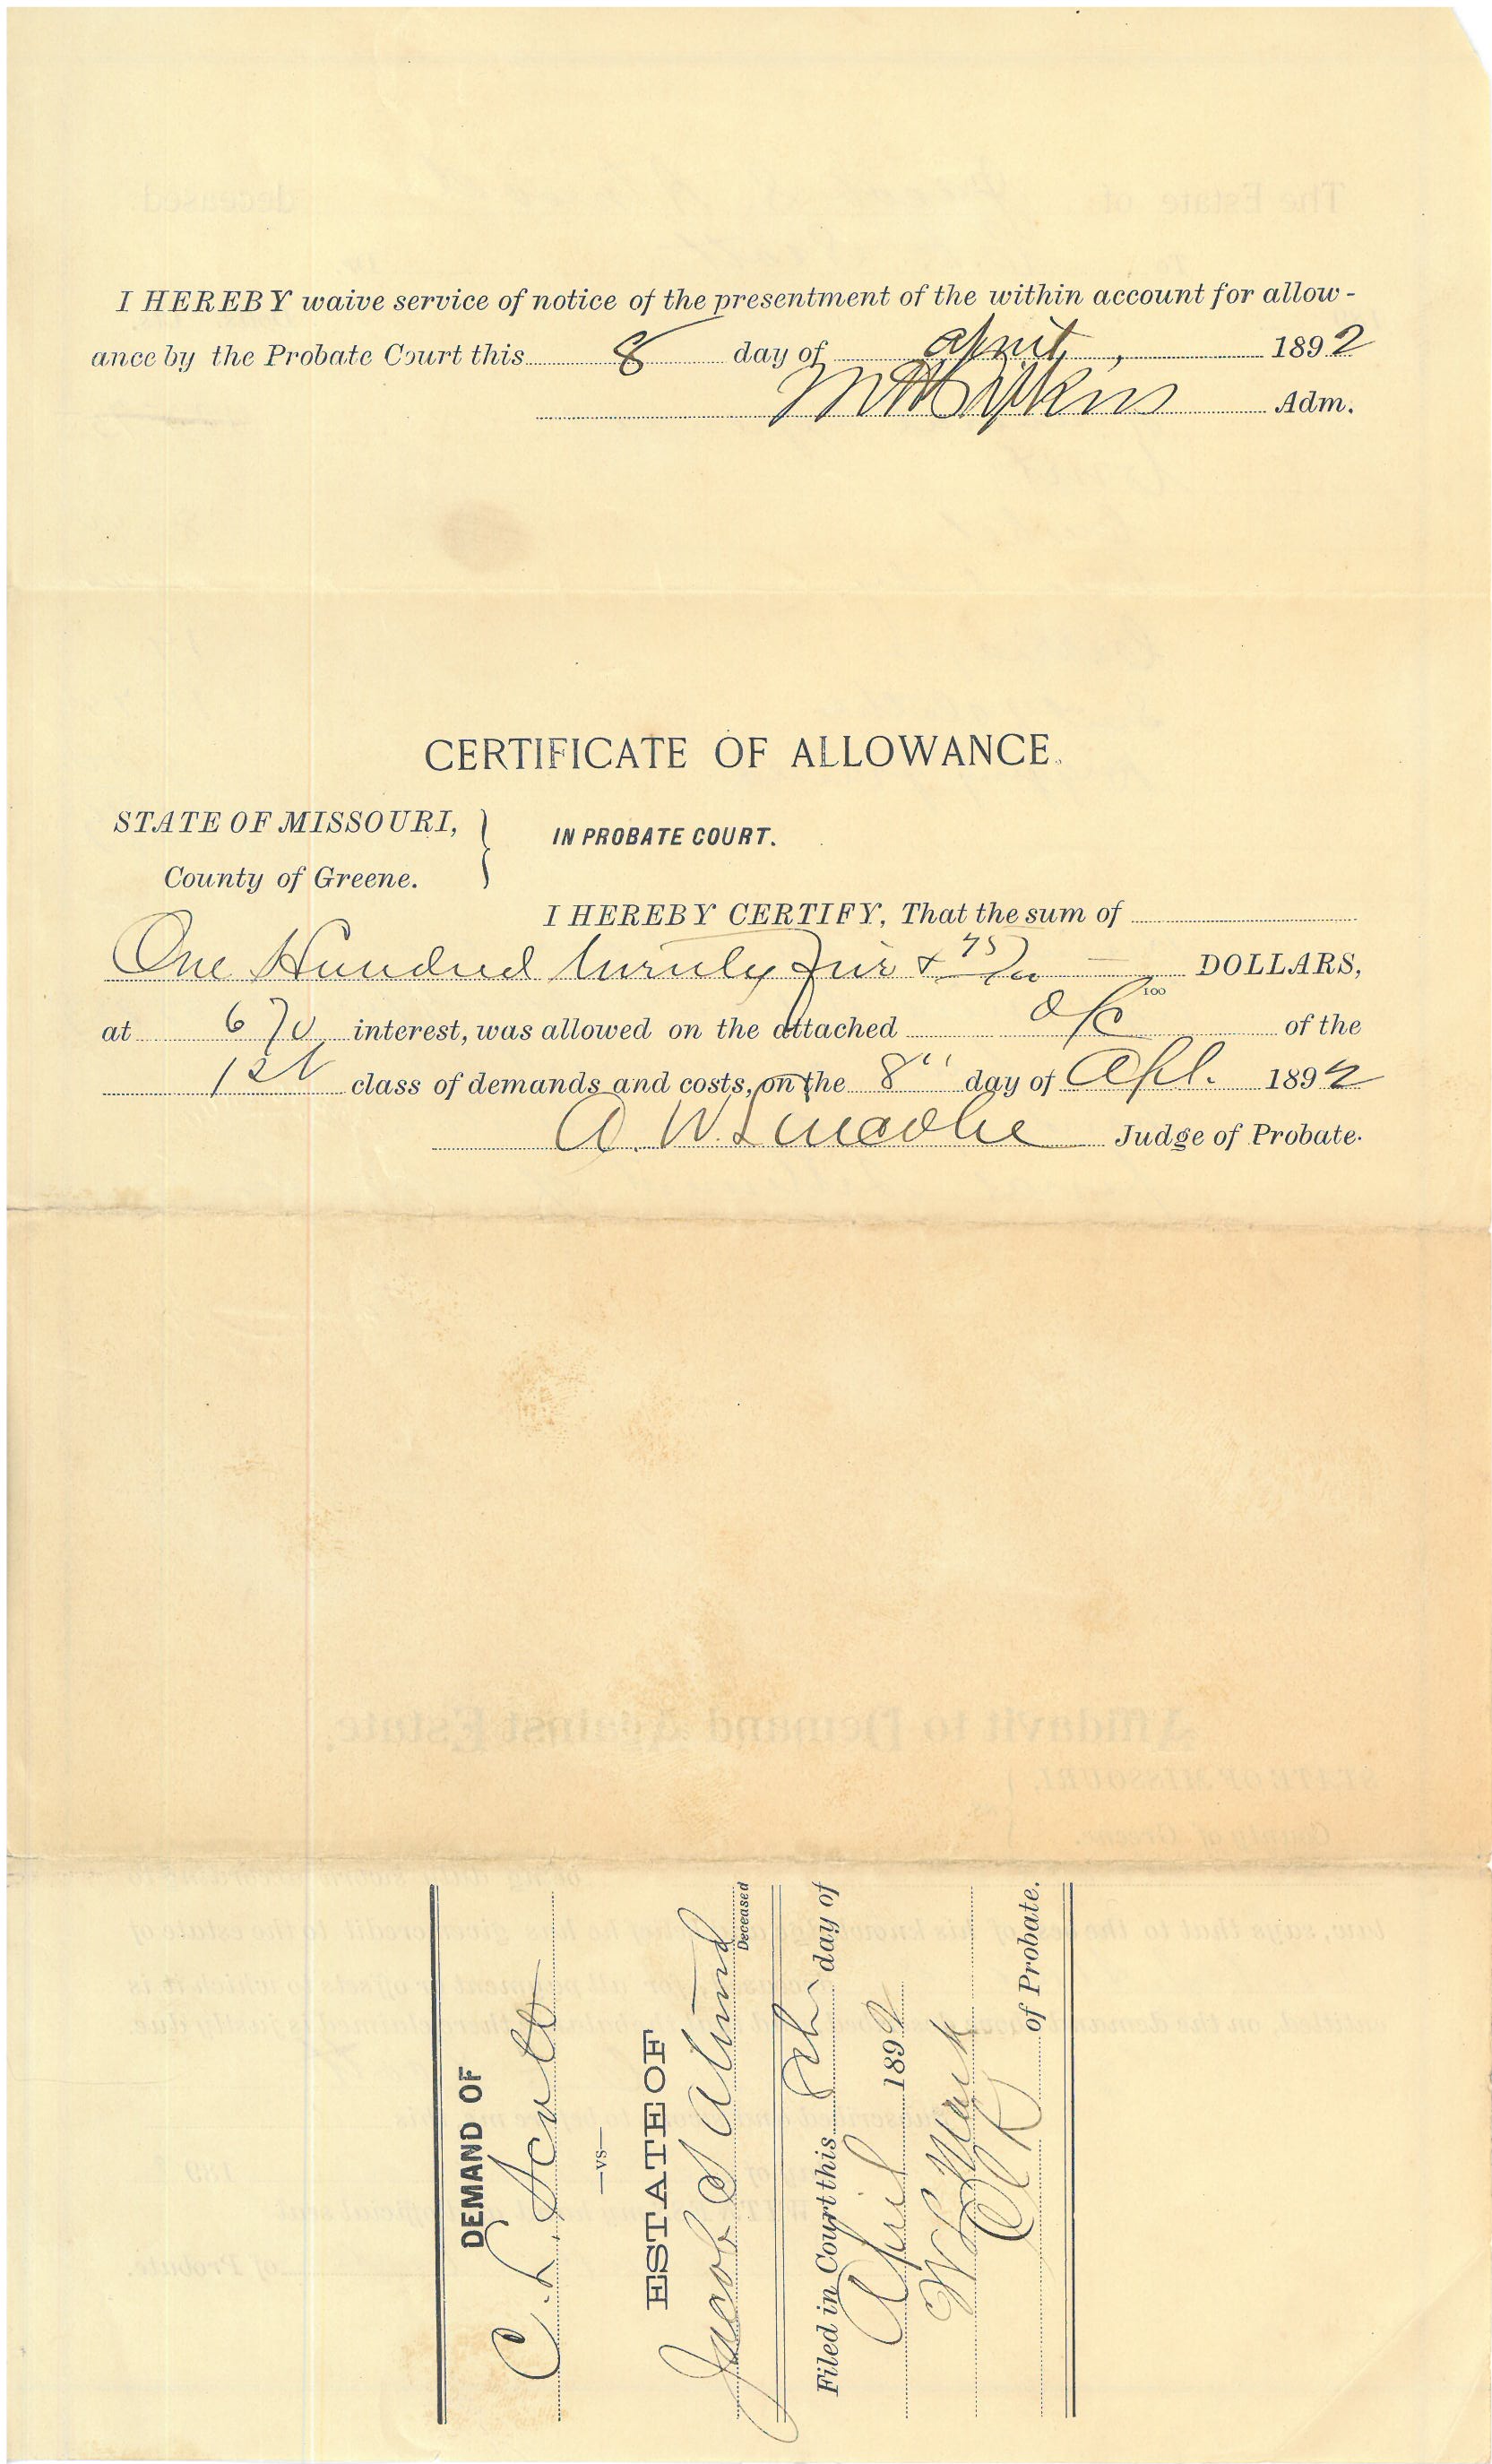 I HEREBY waive service of notice of the presentment of the within account for allow-
ance by the Probate Court this 8 day of april, 1892
Adm.
CERTIFICATE OF ALLOWANCE.
STATE OF MISSOURI,
County of Greene.
IN PROBATE COURT.
I HEREBY CERTIFY, That the sum of
One Hundred twenty five & 75/100 DOLLARS,
at 6 % interest, was allowed on the attached a/c of the
1st class of demands and costs, on the 8" day of Apl. 1892
A. W. Judge of Probate.
DEMAND OF
C. L. Scott
—vs—
ESTATE OF
Jacob S
Deceased
Filed in Court this 8th day of
April 1892
W L
Clk of Probate.